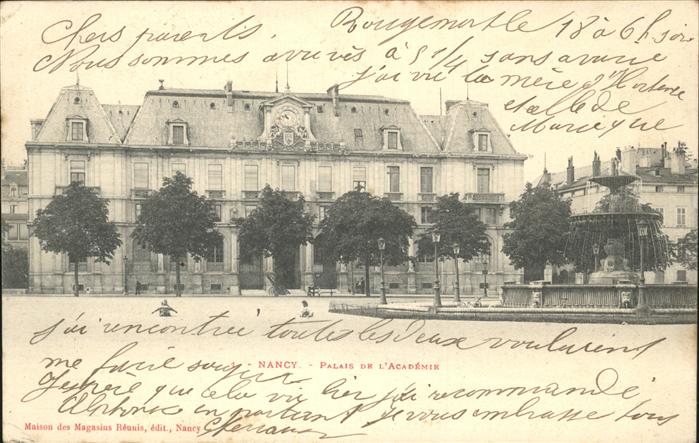 Rougemont le 18 à 6h soir
Chers parents.
Nous sommes arrivés à 5 1/4 sans avarie
j'ai vu la mère d'Hortense
et celle de
Maricque
j'ai rencontrée toutes les deux voulaient
NANCY. - PALAIS DE L'ACADÉMIE
me faire souper
J'espère que cela va hier j'ai recommandé
Alphonse en partant je vous embrasse tous
Maison des Magasins Réunis, édit., Nancy